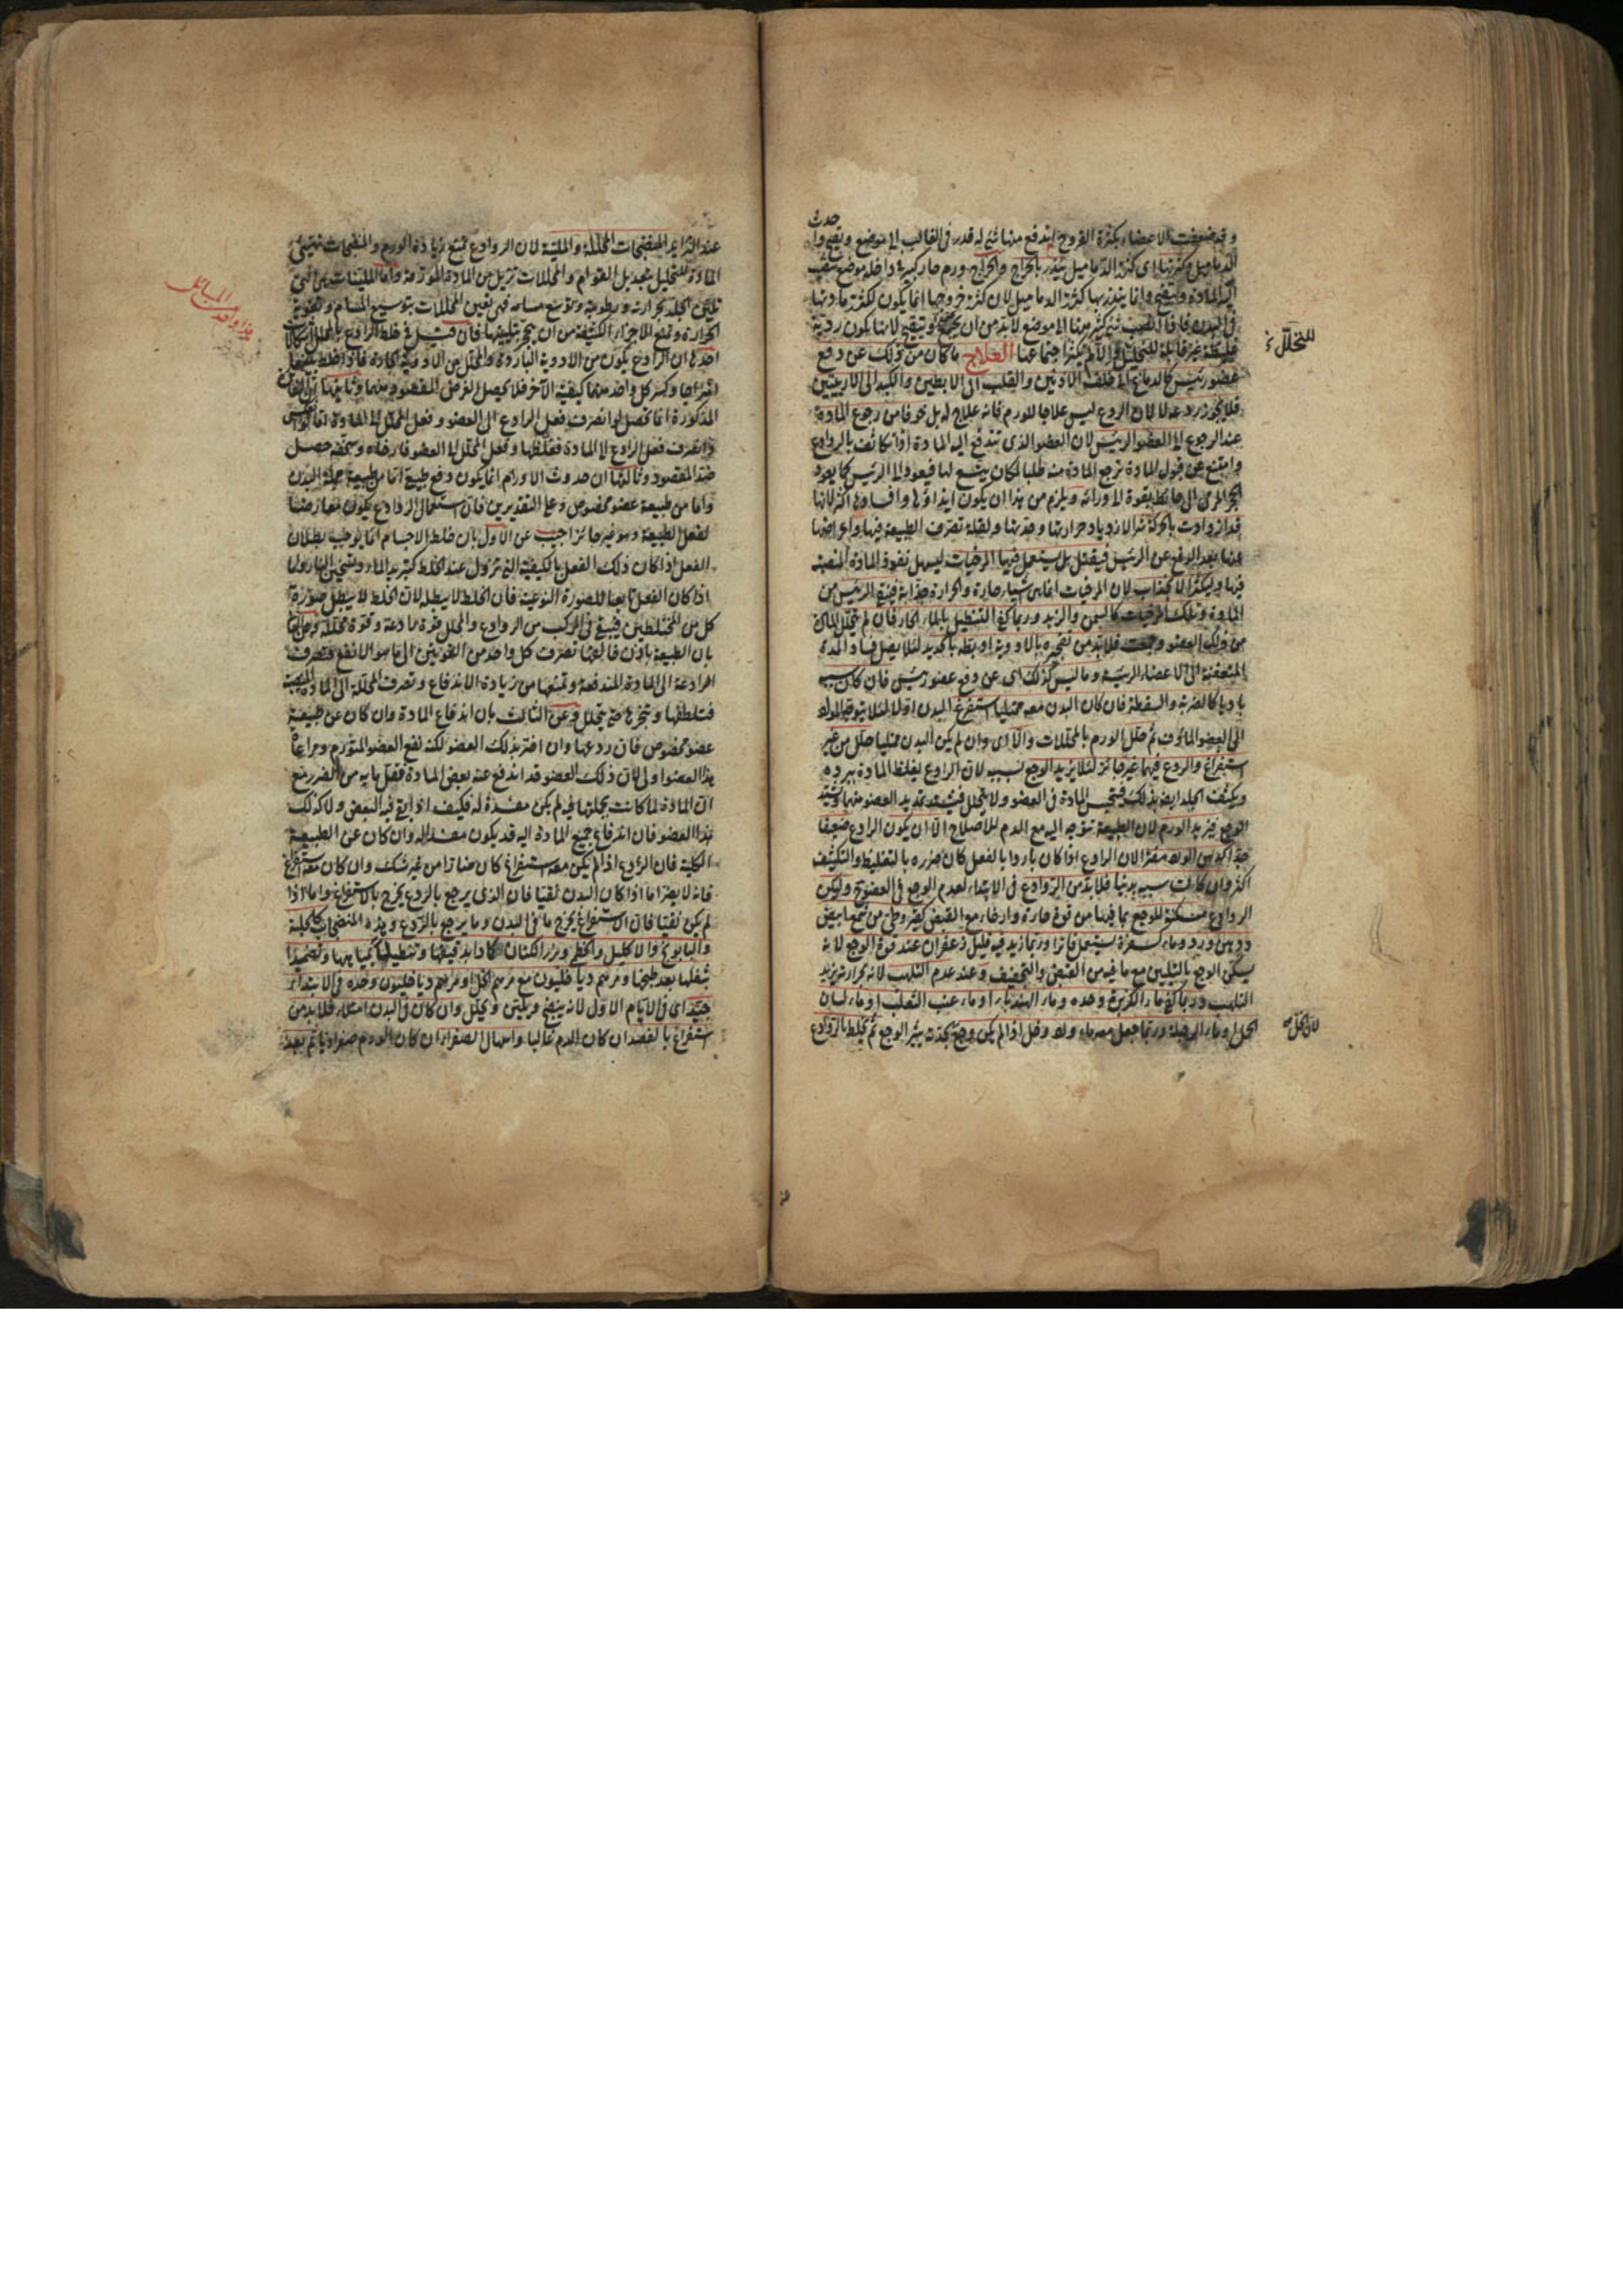 حدث
وقد ضعفت الاعضاء بكثرة القروح اندفع منها شئ له قدر فى الغالب الى موضع وتقيح وا
الدماميل وكثرتها اى كثرة الدماميل تنذر بالخراج والخراج ورم حار كبير فى داخله موضع تنصب
اليه المادة وتتقيح وانما ينذر بها كثرة الدماميل لان كثرة خروجها انما يكون لكثرة مادتها
فى البدن فاذا انصب شئ كثير منها الى موضع لابد من ان يجمع ويتقيح لانها يكون ردية
غليظة غير قابلة للتحليل والا لم يكثر اجتماعها العلاج ما كان من ذلك عن دفع
للتحلل
عضو رئيس كالدماغ الى خلف الاذنين والقلب الى الابطين والكبد الى الاربيتين
فلا يجوز ردعه لا لان الردع ليس علاجا للورم فانه علاج له بل خوفا من رجوع المادة
عند الرجوع الى العضو الرئيس لان العضو الذى تندفع اليه المادة اذا تكاثف بالروادع
وامتنع عن قبول المادة ترجع المادة منه طلبا لمكان يتسع لها فيعود الى الرئيس كما يعود
الحجر المرمى الى حائط بقوة الى ورائه ويلزم من هذا ان يكون ايذاؤها وافسادها اكثر لانها
قد ازدادت بالحركة شرا لازدياد حرارتها وحدتها ولقلة تصرف الطبيعة فيها واعراضها
عنها بعد الدفع عن الرئيس فيقتل بل يستعمل فيها المرخيات ليسهل نفوذ المادة المنصبة
فيها وليكثر الانجذاب لان المرخيات انما هى اشياء حارة والحرارة جذابة فينقى الرئيس من
المادة وتلك المرخيات كالسمن والزبد وربما كفى التنطيل بالماء الحار فان لم يتحلل المادة
من ذلك العضو وجمعت فلابد من تفجيره بالادوية او بطه بالحديد لئلا يصل فساد المدة
المتعفنة الى الاعضاء الرئيسة وما ليس كذلك اى عن دفع عضو رئيس فان كان سببه
باديا كالضربة والسقطة فان كان البدن معه ممتليا استفرغ البدن اولا لئلا يتوجه المواد
الى العضو المأوف ثم حلل الورم بالمحللات والا اى وان لم يكن البدن ممتليا حلل من غير
استفراغ والردع فيهما غير جائز لئلا يزيد الوجع بسببه لان الرادع يغلظ المادة ببرده
ويكثف الجلد ايضا بذلك فتحبس المادة فى العضو ولا يتحلل فيشتد تمديد العضو منها ويشتد
الوجع فيزيد الورم لان الطبيعة تتوجه اليه مع الدم للاصلاح الا ان يكون الرادع ضعيفا
جدا كدهن الورد مفترا لان الرادع اذا كان باردا بالفعل كان ضرره بالتغليظ والتكثيف
اكثر وان كانت سببه بدنيا فلابد من الروادع فى الابتداء لعدم الوجع فى العضو ح وليكن
الروادع مسكنة للوجع بما فيها من قوة حارة وارخاء مع القبض كقيروطى من شمع ابيض
ودهن ورد وماء كسفرة يستعمل فاترا وربما زيد فيه قليل زعفران عند قوة الوجع لانه
يسكن الوجع بالتليين مع ما فيه من القبض والتجفيف وعند عدم التلهب لانه بحرارته يزيد
التلهب وربما كفى ماء الكزبرة وحده وماء الهندباء او ماء عنب الثعلب او ماء لسان
الحمل او ماء الرجلة وربما جعل معه ماء ورد وخل اذا لم يكن وجع بحدته يثير الوجع ثم يخلط بالروادع
لان الخل
عند التزايد المنضجات المحللة والملينة لان الروادع تمنع زيادة الورم والمنضجات تهيئ
المادة للتحليل بتعديل القوام والمحللات تزيل من المادة المورمة واما الملينات فهى التى
تلين الجلد بحرارته ورطوبته وتوسع مسامه فهى تعين المحللات بتوسيع المسام وتقوية
هذا واحد من المسائل
الحرارة وتمنع الاجزاء الكثيفة من ان يتحجر بتليينها فان قيل فى خلط الرادع بالمحلل اشكالات
احدها ان الرادع يكون من الادوية الباردة والمحلل من الادوية الحارة فاذا اختلط بينهما
امتزاجا وكسر كل واحد منهما كيفية الآخر فلا يحصل الغرض المقصود منهما وثانيها ان
المذكورة انما تحصل لو انصرف فعل الرادع الى العضو وفعل المحلل الى المادة اما
وانصرف فعل الرادع الى المادة فغلظها وفعل المحلل الى العضو فارخاه وسخفه حصل
ضد المقصود وثالثها ان حدوث الاورام انما يكون دفع طبيعة اما من طبيعة جملة البدن
واما من طبيعة عضو مخصوص وعلى التقديرين فان استعمال الروادع يكون معارضا
لفعل الطبيعة وهو غير جائز اجيب عن الاول بان خلط الاجسام انما يوجب بطلان
الفعل اذا كان ذلك الفعل بالكيفية التى تزول عند الخلط كتبريد الماء وتسخين النار واما
اذا كان الفعل تابعا للصورة النوعية فان الخلط لا يبطله لان الخلط لا يبطل صورة
كل من المختلطين فيبقى فى المركب من الروادع والمحلل قوة رادعة وقوة محللة وعن الثانى
بان الطبيعة باذن خالقها تصرف كل واحد من القوتين الى ما هو الانفع فتصرف
الرادعة الى المادة المندفعة وتمنعها من زيادة الاندفاع وتصرف المحللة الى المادة المنصبة
فتلطفها وتبخرها حتى يتحلل وعن الثالث بان اندفاع المادة وان كان عن طبيعة
عضو مخصوص فان ردعها وان اضر بذلك العضو لكنه نفع العضو المتورم ومراعاة
هذا العضو اولى لان ذلك العضو قد اندفع عنه بعض المادة فقل ما به من الضرر مع
ان المادة لما كانت بجملتها فيه لم يكن مفسدة له فكيف اذا بقى فيه البعض ولا كذلك
هذا العضو فان اندفاع جميع المادة اليه قد يكون مفسدا له وان كان عن الطبيعة
الكلية فان الردع اذا لم يكن معه استفراغ كان ضارا من غير شك وان كان معه استفراغ
فانه لا يضر اما اذا كان البدن نقيا فان الذى يرجع بالردع يخرج بالاستفراغ واما اذا
لم يكن نقيا فان الاستفراغ يخرج ما فى البدن وما يرجع بالردع وهذه المنضجات كالحلبة
والبابونج والاكليل والخطمى وبزر الكتان كمادا بدقيقها وتنطيلا بمياهها وتضميدا
بثفلها بعد طبخها ومرهم دياخليون مع مرهم الخل او مرهم دياخليون وحده فى الابتداء
جيد اى فى الايام الاول لانه ينضج ويلين ويحلل وان كان فى البدن امتلاء فلابد من
استفراغ بالفصد ان كان الدم غالبا واسهال الصفراء ان كان الورم صفراويا ثم بعد